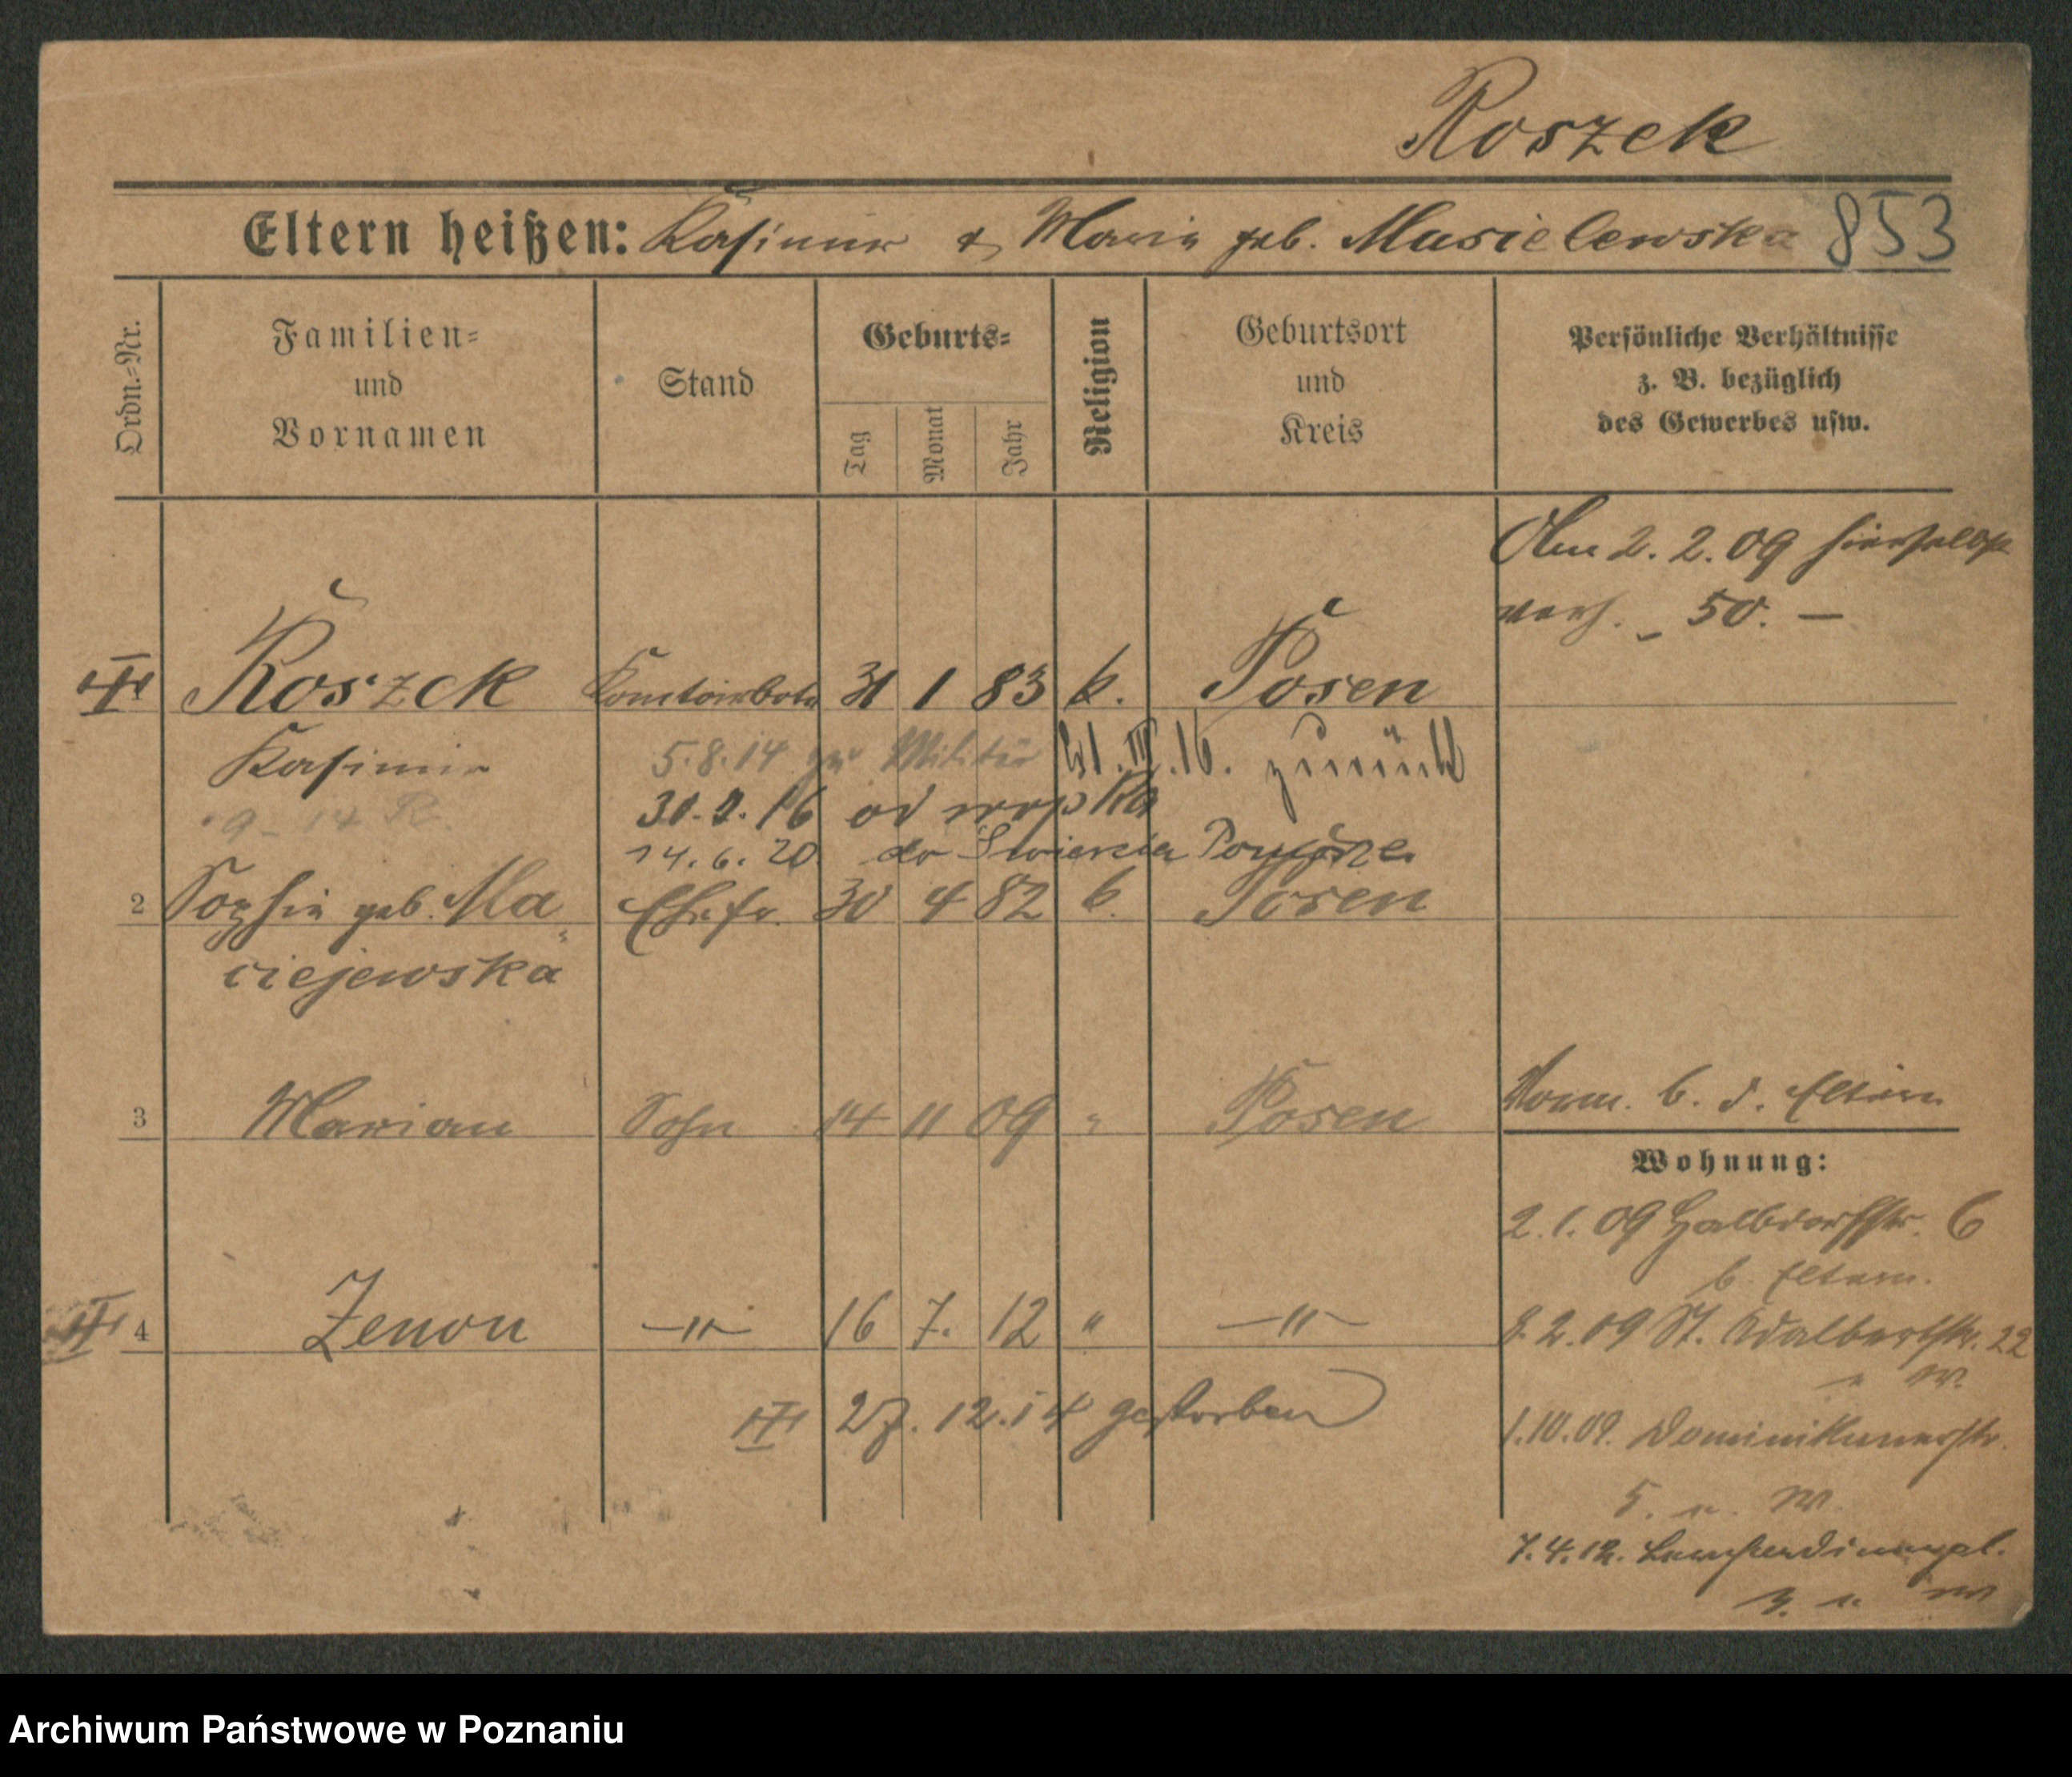 Roszek
Eltern heißen: Kasimir & Maria geb. Musielewska 853
Ordn.=Nr.
Familien=
und
Vornamen
Stand
Geburts=
Tag
Monat
Jahr
Religion
Geburtsort
und
Kreis
Persönliche Verhältnisse
z. B. bezüglich
des Gewerbes usw.
Am 2. 2. 09 hierselbst
verh. 50. —
Roszek Komtoirbote 31 1 83 k. Posen
Kasimir 5.8.14 zur Militär 31.III.16. zurück
9 14 R. 30. 16 od
14. 6. 20 do
2 Sophie geb. Ma= Ehefr. 30 4 82 k. Posen
ciejewska
3 Marian Sohn 14 11 09 " Posen
Vorm. b. d. Eltern
Wohnung:
2.1.09 Halbdorfstr. 6
b. Eltern.
4 Zenon —"— 16 7. 12 " —"—
8.2.09 St. Adalbertstr. 22
W.
27.12.14 gestorben
1.10.09. Dominikanerstr.
5. W.
7.4.12.
3.
Archiwum Państwowe w Poznaniu